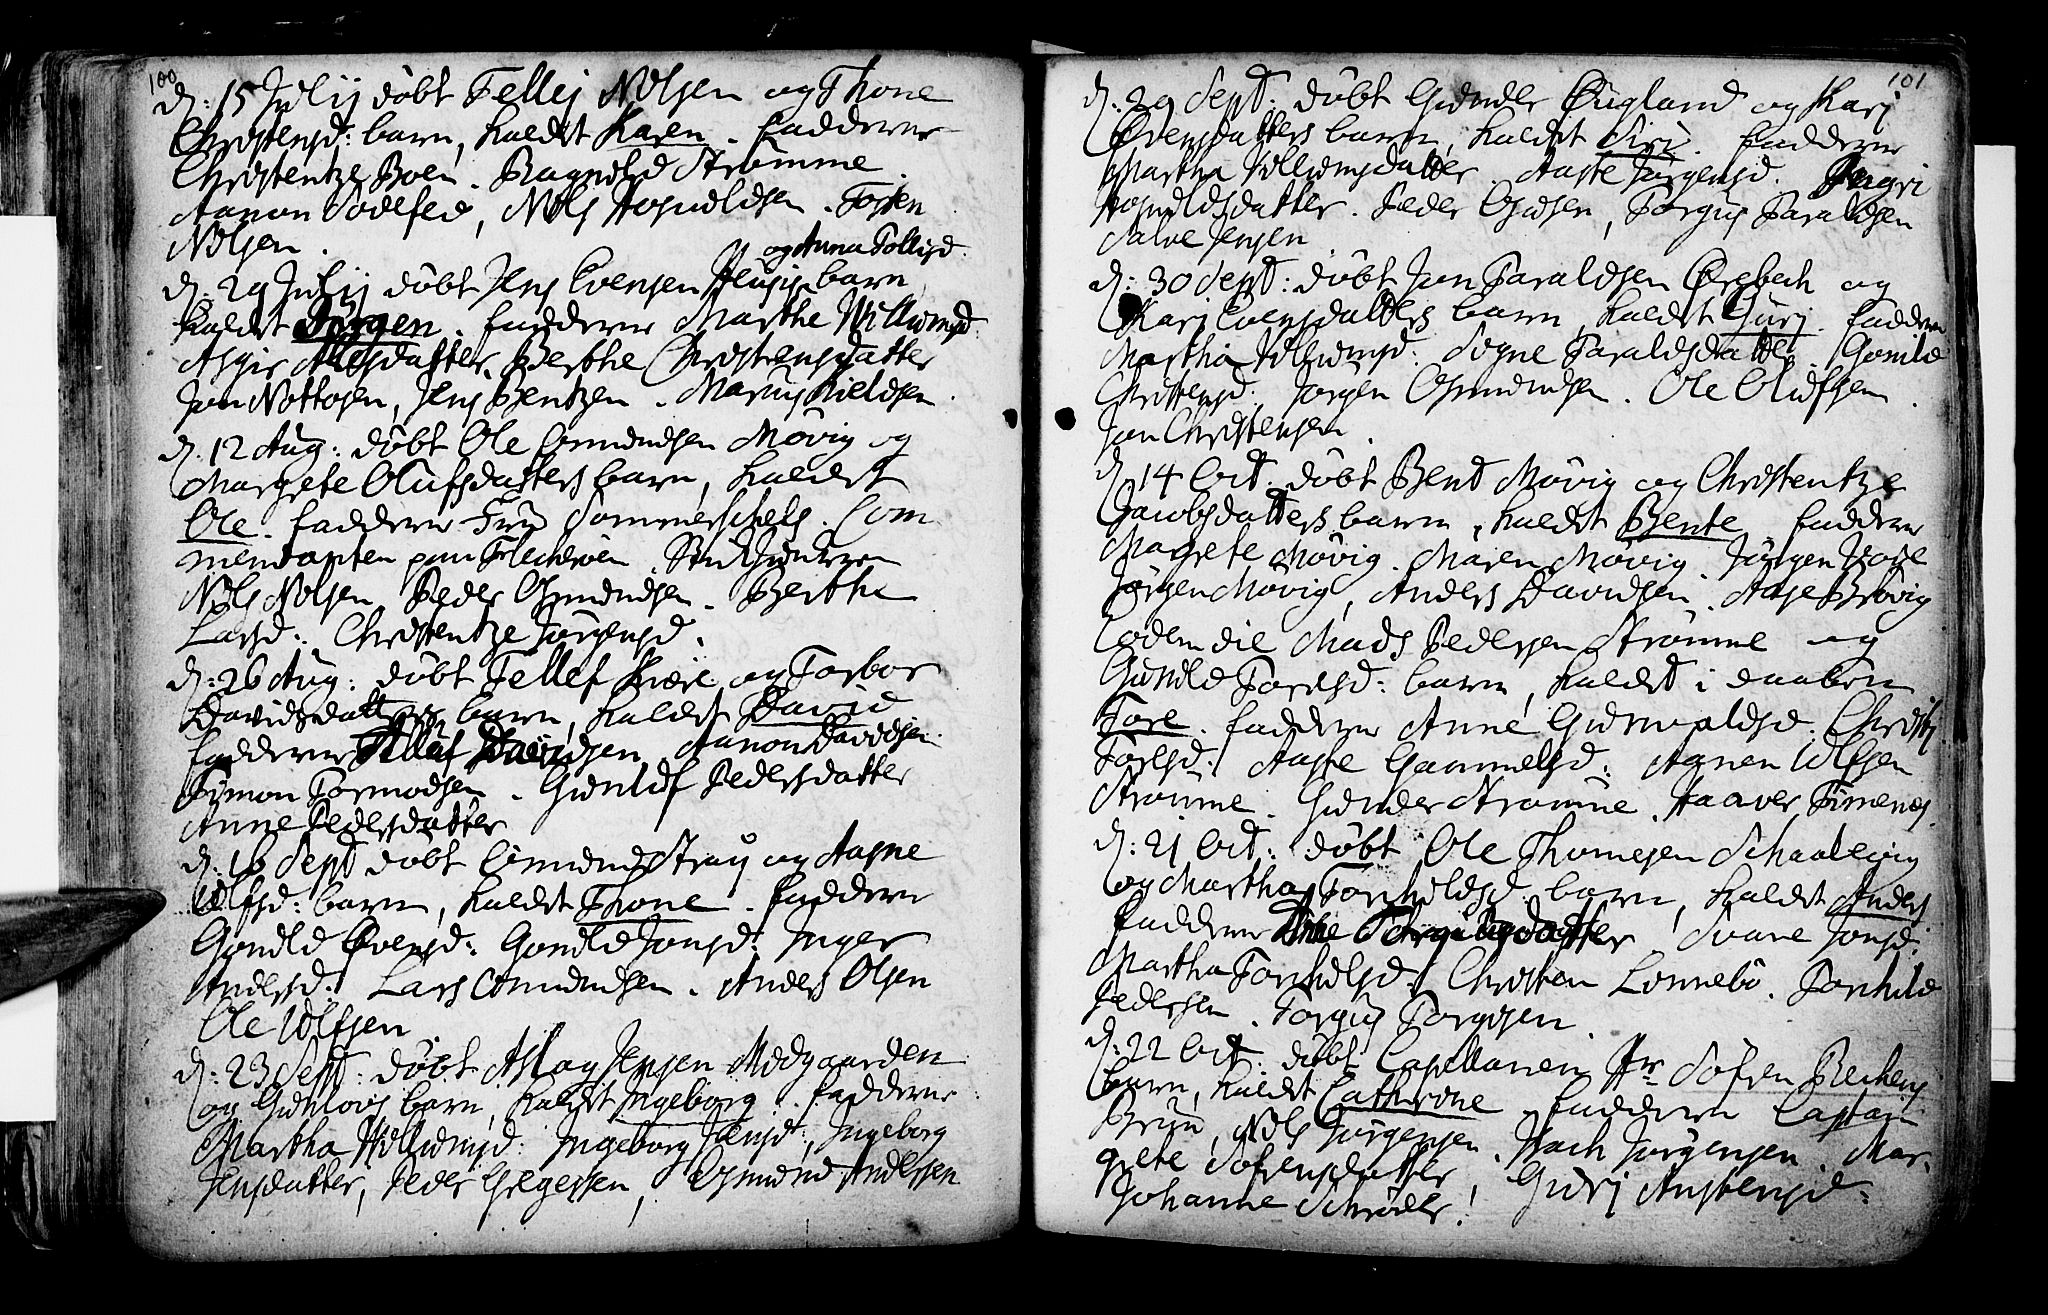 100
d: 15 Julij døbt Tellej Nilsen og Thone
Christensd: barn, kaldet Karen. fadderne
Christentze Boen. Ragnild Strømme
Aanon Sodefed, Nils Hognildsen. Tosten
Nilsen.
og Anna Tollisd.
d: 29 Julij døbt Jens Evensen barn
kaldet Jørgen. fadderne Marthe Villumsd
Asgier Nilsdatter. Berthe Christensdatter
Jon Nottosen, Jens Bentzen. Marcus Kieldsen.
d. 12 Aug: døbt Ole Omundsen Møvig og
Margrete Olufsdatters barn, kaldet
Ole. fadderne Frue Sommerschels. Com
mendanten paa Flecherøen. Stukjunkeren
Nils Nilsen Peder Osmundsen. Berthe
Larsd: Christentze Jørgensd.
d: 26 Aug: døbt Tellef Kiære og Torbor
Davidsdatters barn, kaldet David
fadderne Tellef Davidsen, Aanon Davidsen
Simon Tormodsen. Gunluf Pedersdatter
Anne Pedersdatter
d: 16 Sept døbt Omund Stray og Aagne
Ulfsd: barn, kaldet Thone. fadderne
Gonild Evensd: Gonild Jonsd: Inger
Andersd: Lars Omundsen. Anders Olsen
Ole Ulfsen.
d: 23 Sept: døbt Aslag Jensen Midgaarden
og Gunlous barn, kaldet Ingeborg. fadderne
Martha Villumsd: Ingeborg Jensd:, Ingeborg
Jensdatter, Peder Gregersen, Osmund Andersen
101
d: 29 Sept: døbt Gunder Øugland og Karj
Evensdatters barn, kaldet Siri. fadderne
Martha Villumsdatter. Aaste Jørgensd. Ingri
Hognildsdatter. Peder Olusen, Torgus Taraldsen
Salve Jensen.
d: 30 Sept: døbt Jon Taraldsen Ørebech og
Karj Evensdatters barn, kaldet Gurj. fadderne
Martha Villumsd: Signe Taraldsdatter. Gonild
Christensd. Jørgen Osmundsen. Ole Olufsen.
Jon Christensen.
d. 14 Oct: døbt Bent Møvig og Christentze
Jacobsdatters barn, kaldet Bente fadderne
Margrete Møvig. Maren Møvig. Jørgen Voie
Jørgen Møvig, Anders Davidsen. Aase Brøvig
Eodem die Mads Pedersen Strømme og
Gunild Torisd: barn, kaldet i daaben
Tore. fadderne Anne Gunvaldsd: Christj
Torisd: Aaste Gammelsd: Aanen Ulfsen
Strømme. Gunder Strømme. Haaver Simensens
d: 21 Oct: døbt Ole Thomesen Schaalevig
og Martha Torkildsd barn, kaldet Anders
fadderne datter. Svane Jonsd.
Martha Torkilsd: Christen Lonnebø. Torkild
Pedersen. Torgus Torgusen.
d: 22 Oct. døbt Capellanen Hr Søfren Bechens
barn, kaldet Cathrine fadderne Captain
Bruun, Nils Jørgensen. Isach Jørgensen. Mar
grete Søfrensdatter Gurj Anstensd:
Johanne Schrøder.